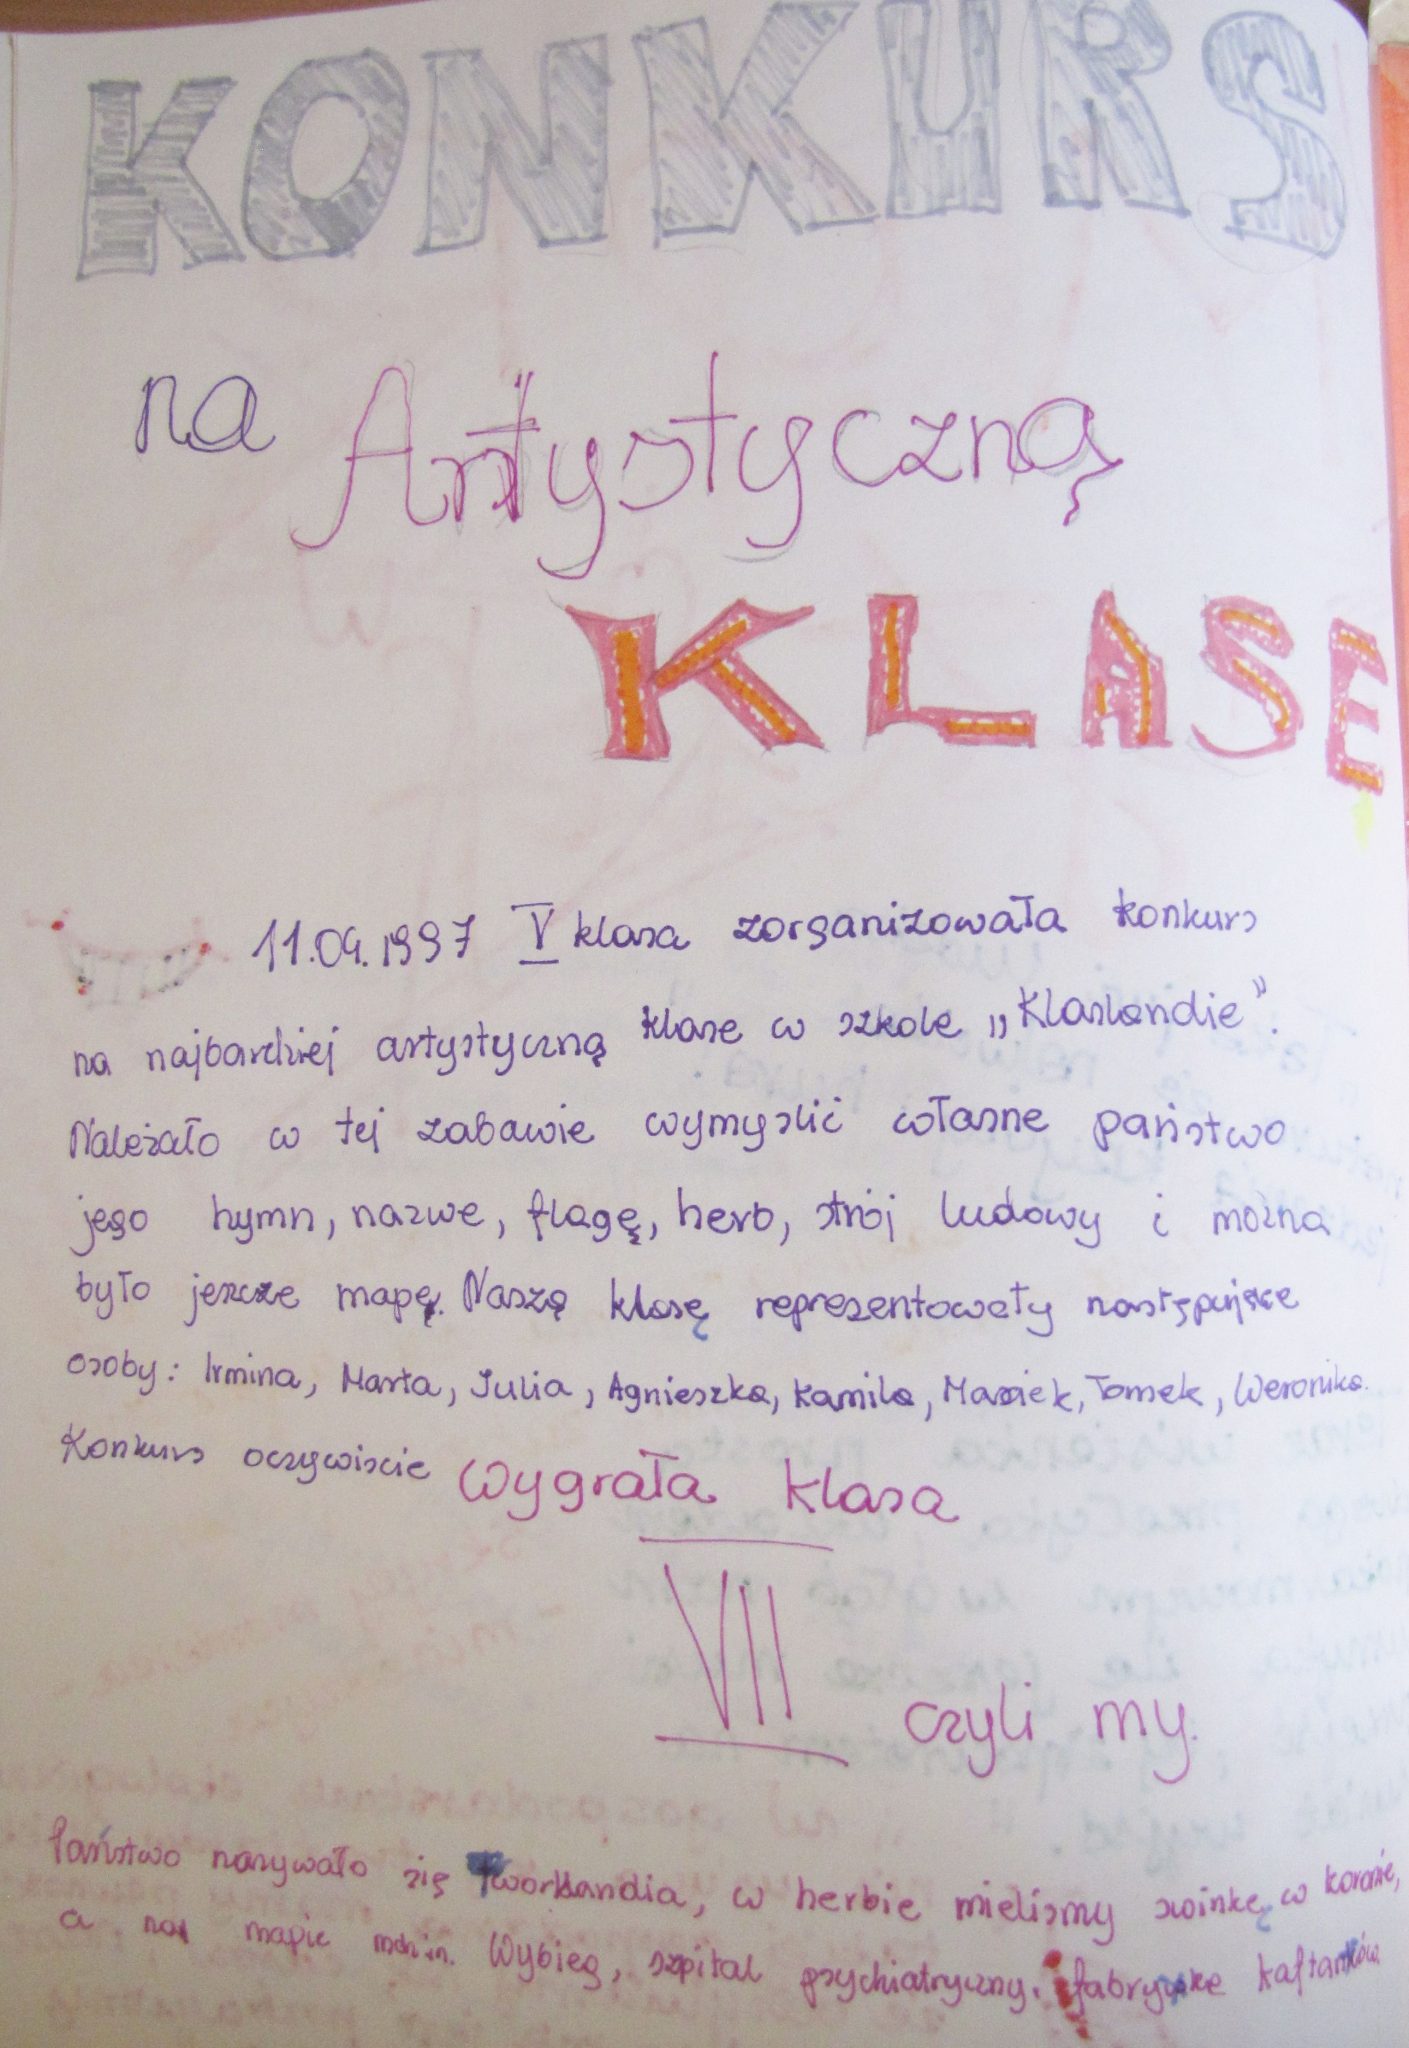 KONKURS
na Artystyczną
KLASĘ
11.09.1997 V klasa zorganizowała konkurs
na najbardziej artystyczną klase w szkole „Klaslandie”.
Należało w tej zabawie wymyslić własne państwo
jego hymn, nazwe, flagę, herb, strój ludowy i można
było jeszcze mapę. Naszą klasę reprezentowały następujące
osoby: Irmina, Marta, Julia, Agnieszka, Kamila, Maciek, Tomek, Weronika.
Konkurs oczywiscie wygrała klasa
VII czyli my.
Państwo nazywało się tworklandia, w herbie mielismy swinkę w koronie,
a na mapie m.in. Wybieg, szpital psychiatryczny, fabrykę kaftanków